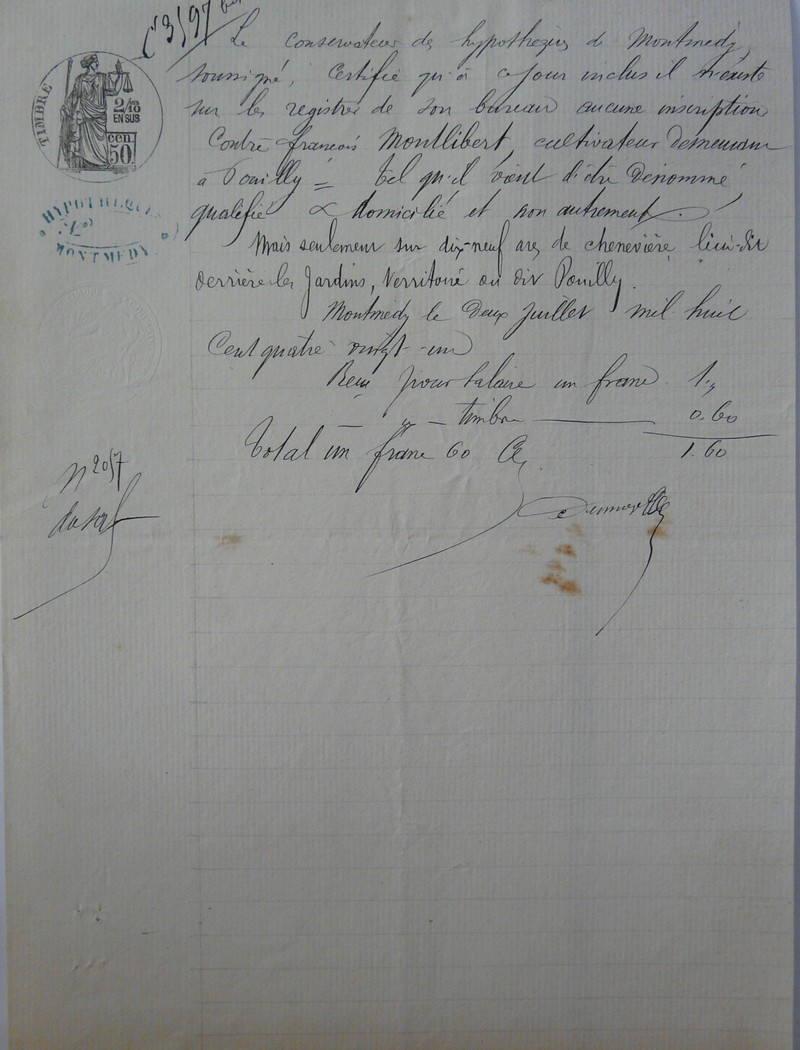 Le Conservateur des hypothèques de Montmédy,
soussigné, Certifie qu'à ce jour inclus il n'existe
sur les registres de son bureau aucune inscription
Contre françois Montlibert, cultivateur demeurant
à Pouilly = tel qu'il vient d'être dénommé
qualifié & domicilié et non autrement.
Mais seulement sur dix-neuf ares de chenevière lieu-dit
derrière les Jardins, territoire du dit Pouilly.
Montmédy le Deux Juillet mil huit
Cent quatre vingt-un
Reçu pour salaire un franc. 1.,
— " — timbre — 0.60
Total un franc 60 Ces 1.60
TIMBRE
2/10
EN SUS
50 cen.
HYPOTHEQUES
MONTMEDY
N 2057
du sal